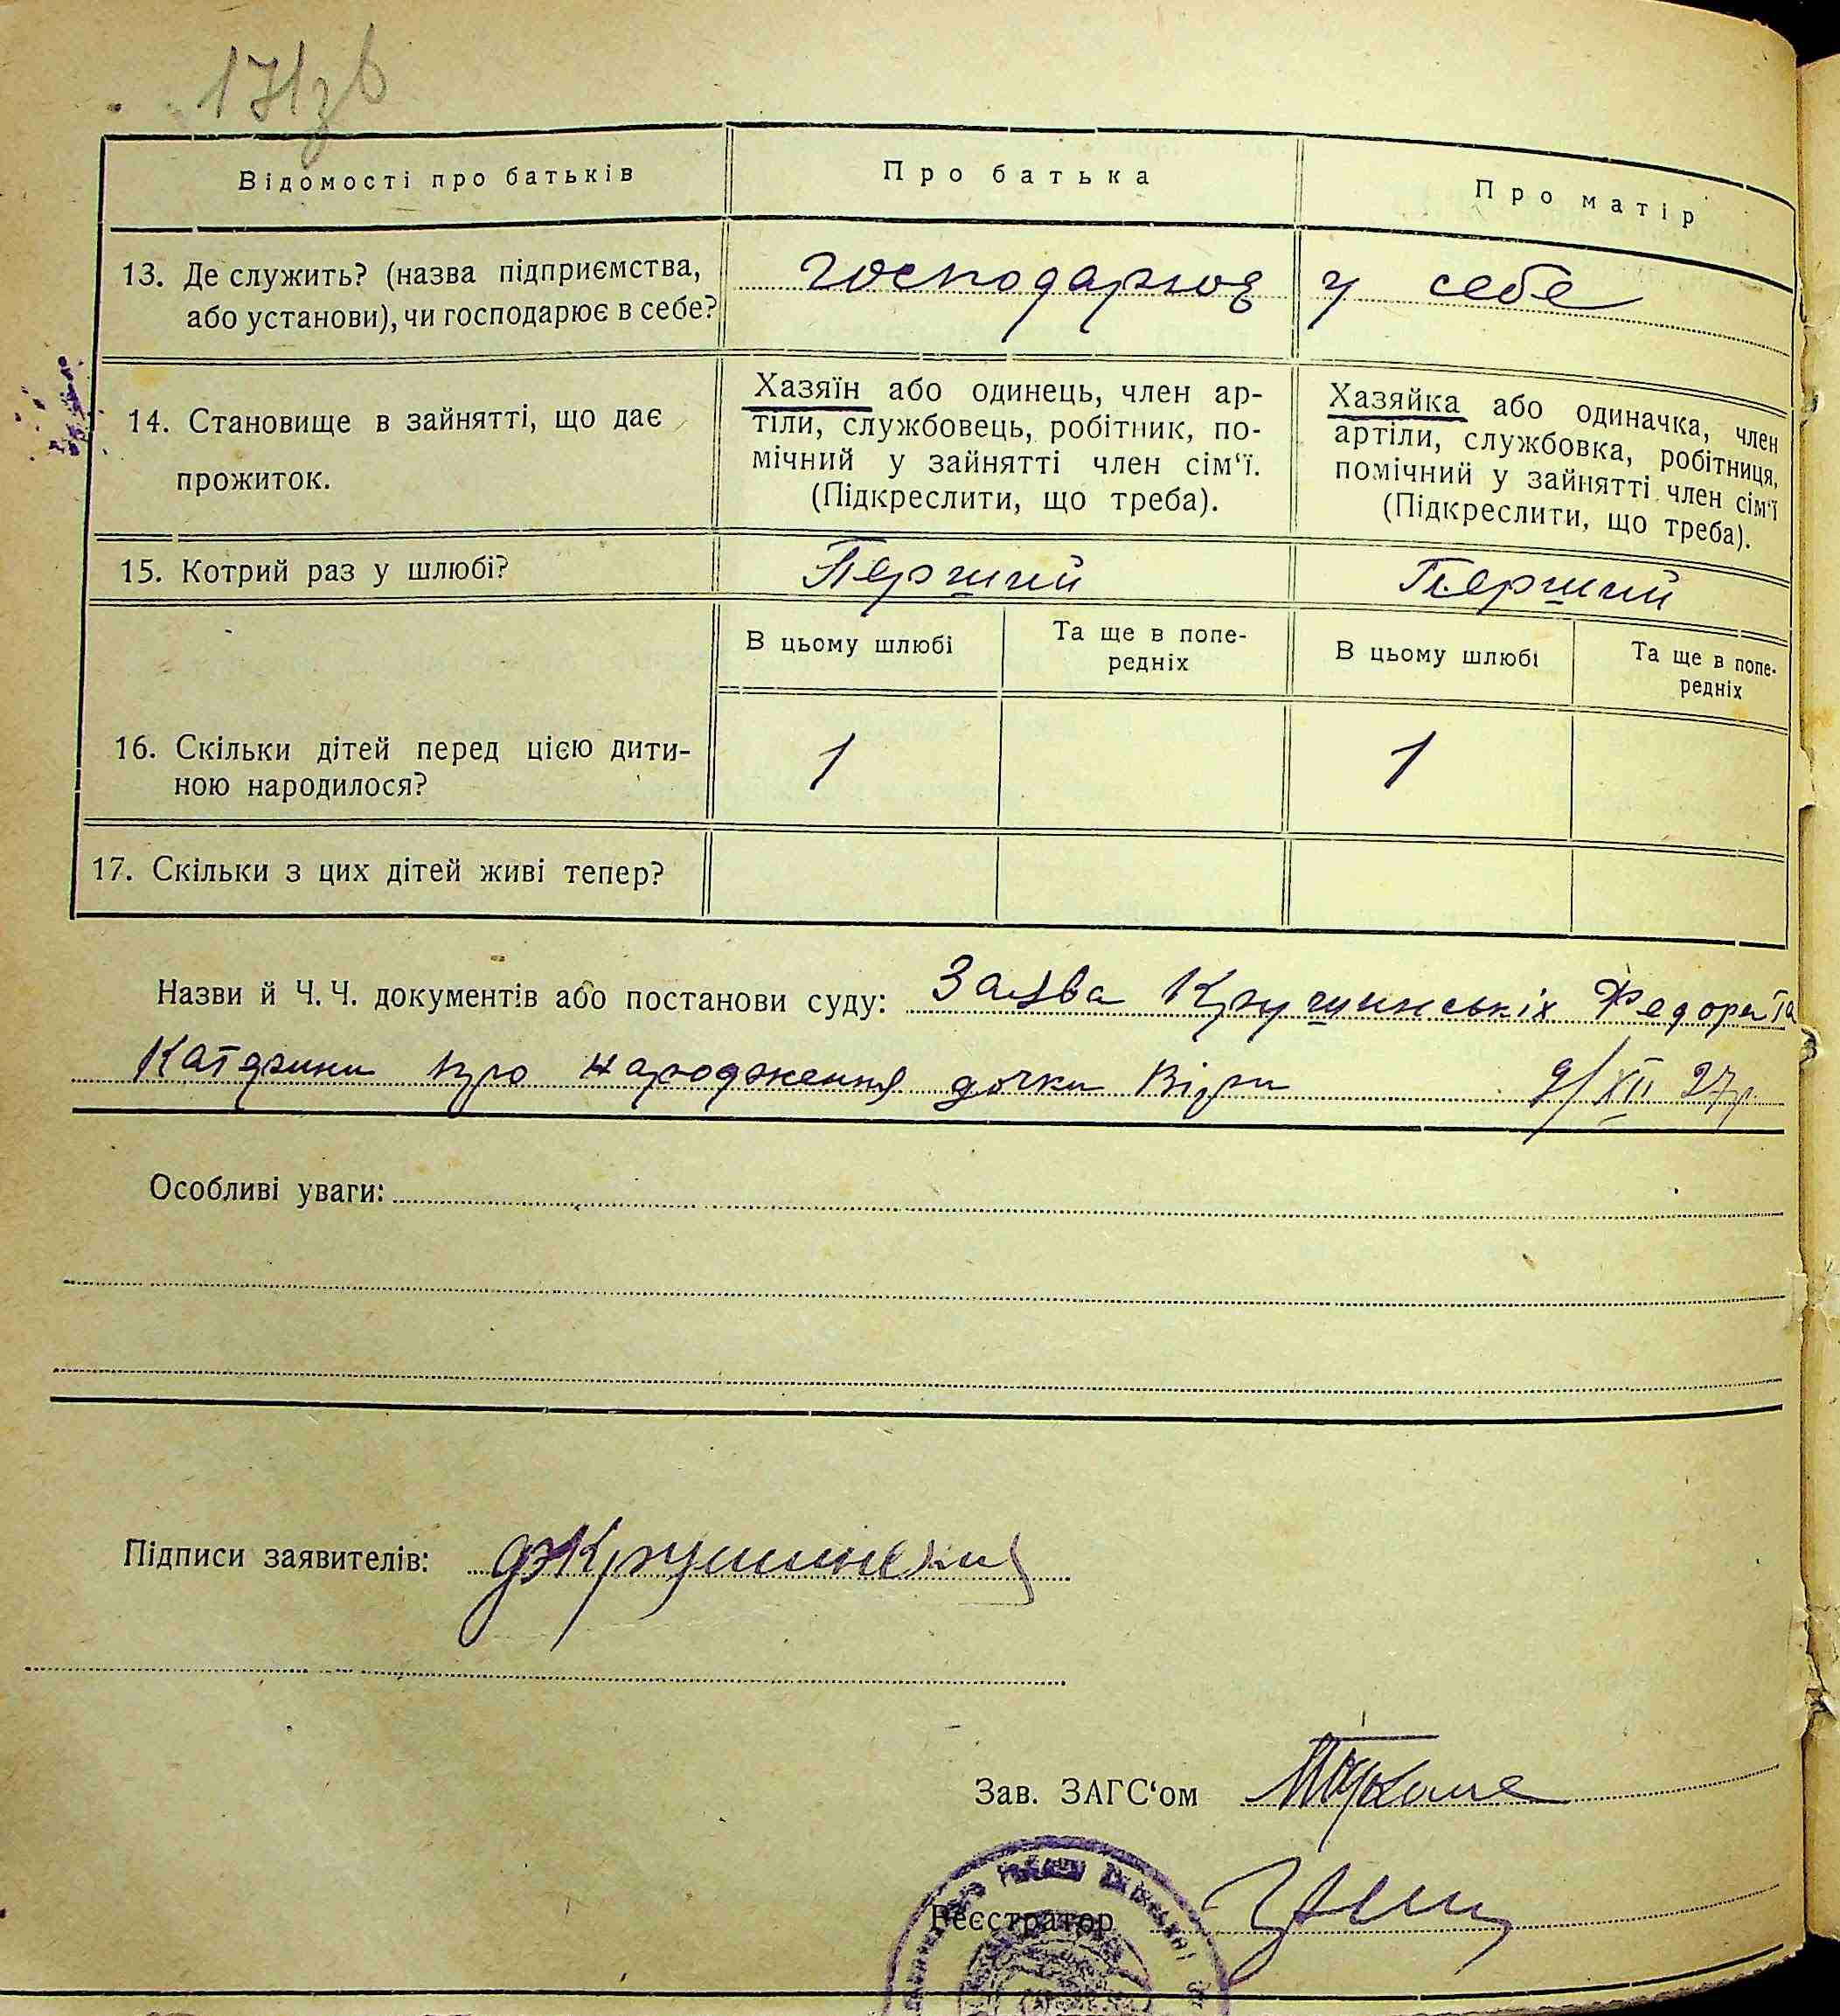 171зв
Відомості про батьків
Про батька
Про матір
13. Де служить? (назва підприємства,
або установи), чи господарює в себе?
господарює у себе
14. Становище в зайнятті, що дає
прожиток.
Хазяїн або одинець, член ар-
тіли, службовець, робітник, по-
мічний у зайнятті член сім‘ї.
(Підкреслити, що треба).
Хазяйка або одиначка, член
артіли, службовка, робітниця,
помічний у зайнятті член сім‘ї
(Підкреслити, що треба).
15. Котрий раз у шлюбі?
Перший
Перший
В цьому шлюбі
Та ще в попе-
редніх
В цьому шлюбі
Та ще в попе-
редніх
16. Скільки дітей перед цією дити-
ною народилося?
1
1
17. Скільки з цих дітей живі тепер?
Назви й Ч. Ч. документів або постанови суду: Заява Крушинськіх Федора та
Катерини про народження дочки Віри 9/XII 27р.
Особливі уваги:
Підписи заявителів: Крушинский
Зав. ЗАГС‘ом
Реєстратор